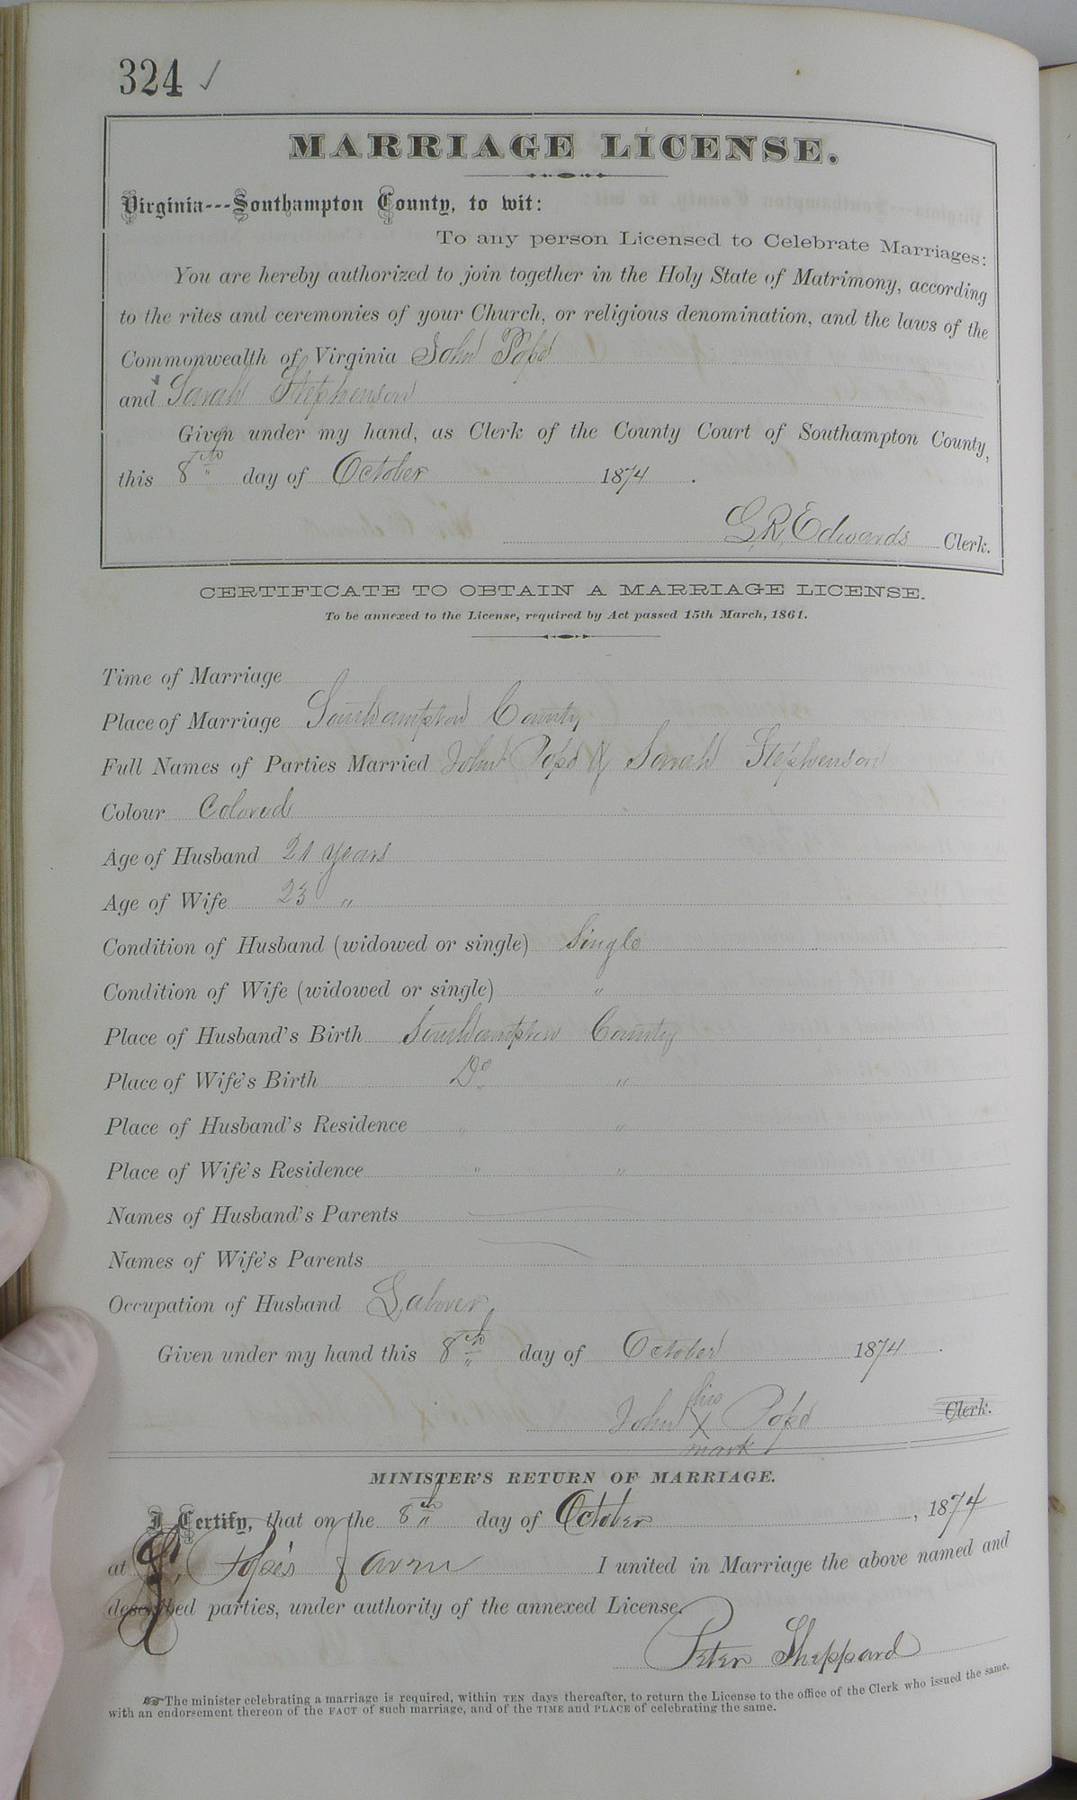 324 ✓
MARRIAGE LICENSE.
Virginia---Southampton County, to wit:
To any person Licensed to Celebrate Marriages:
You are hereby authorized to join together in the Holy State of Matrimony, according
to the rites and ceremonies of your Church, or religious denomination, and the laws of the
Commonwealth of Virginia John Pope
and Sarah Stephenson
Given under my hand, as Clerk of the County Court of Southampton County,
this 8th day of October 1874.
L. R. Edwards Clerk.
CERTIFICATE TO OBTAIN A MARRIAGE LICENSE.
To be annexed to the License, required by Act passed 15th March, 1861.
Time of Marriage
Place of Marriage Southampton County
Full Names of Parties Married John Pope & Sarah Stephenson
Colour Colored
Age of Husband 21 years
Age of Wife 23 "
Condition of Husband (widowed or single) Single
Condition of Wife (widowed or single) "
Place of Husband's Birth Southampton County
Place of Wife's Birth Do "
Place of Husband's Residence " "
Place of Wife's Residence " "
Names of Husband's Parents
Names of Wife's Parents
Occupation of Husband Laborer
Given under my hand this 8th day of October 1874.
John his X mark Pope Clerk.
MINISTER'S RETURN OF MARRIAGE.
I Certify, that on the 8th day of October, 1874
at Pope's farm I united in Marriage the above named and
described parties, under authority of the annexed License.
Peter Sheppard
☞The minister celebrating a marriage is required, within TEN days thereafter, to return the License to the office of the Clerk who issued the same,
with an endorsement thereon of the FACT of such marriage, and of the TIME and PLACE of celebrating the same.